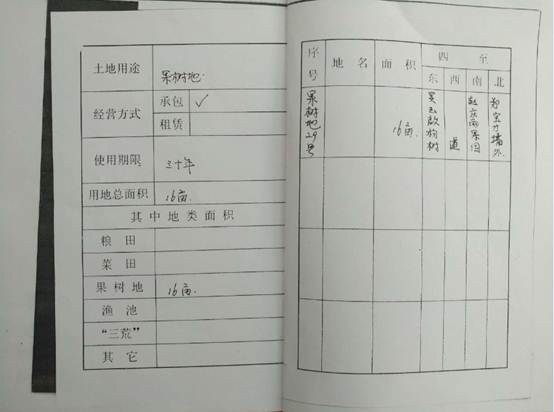 土地用途 果树地
经营方式 承包 ✓
租赁
使用期限 三十年
用地总面积 16亩.
其中地类面积
粮田
菜田
果树地 16亩.
渔池
“三荒”
其它
序号 地名 面积 四至
东 西 南 北
果树地29号 16亩. 道